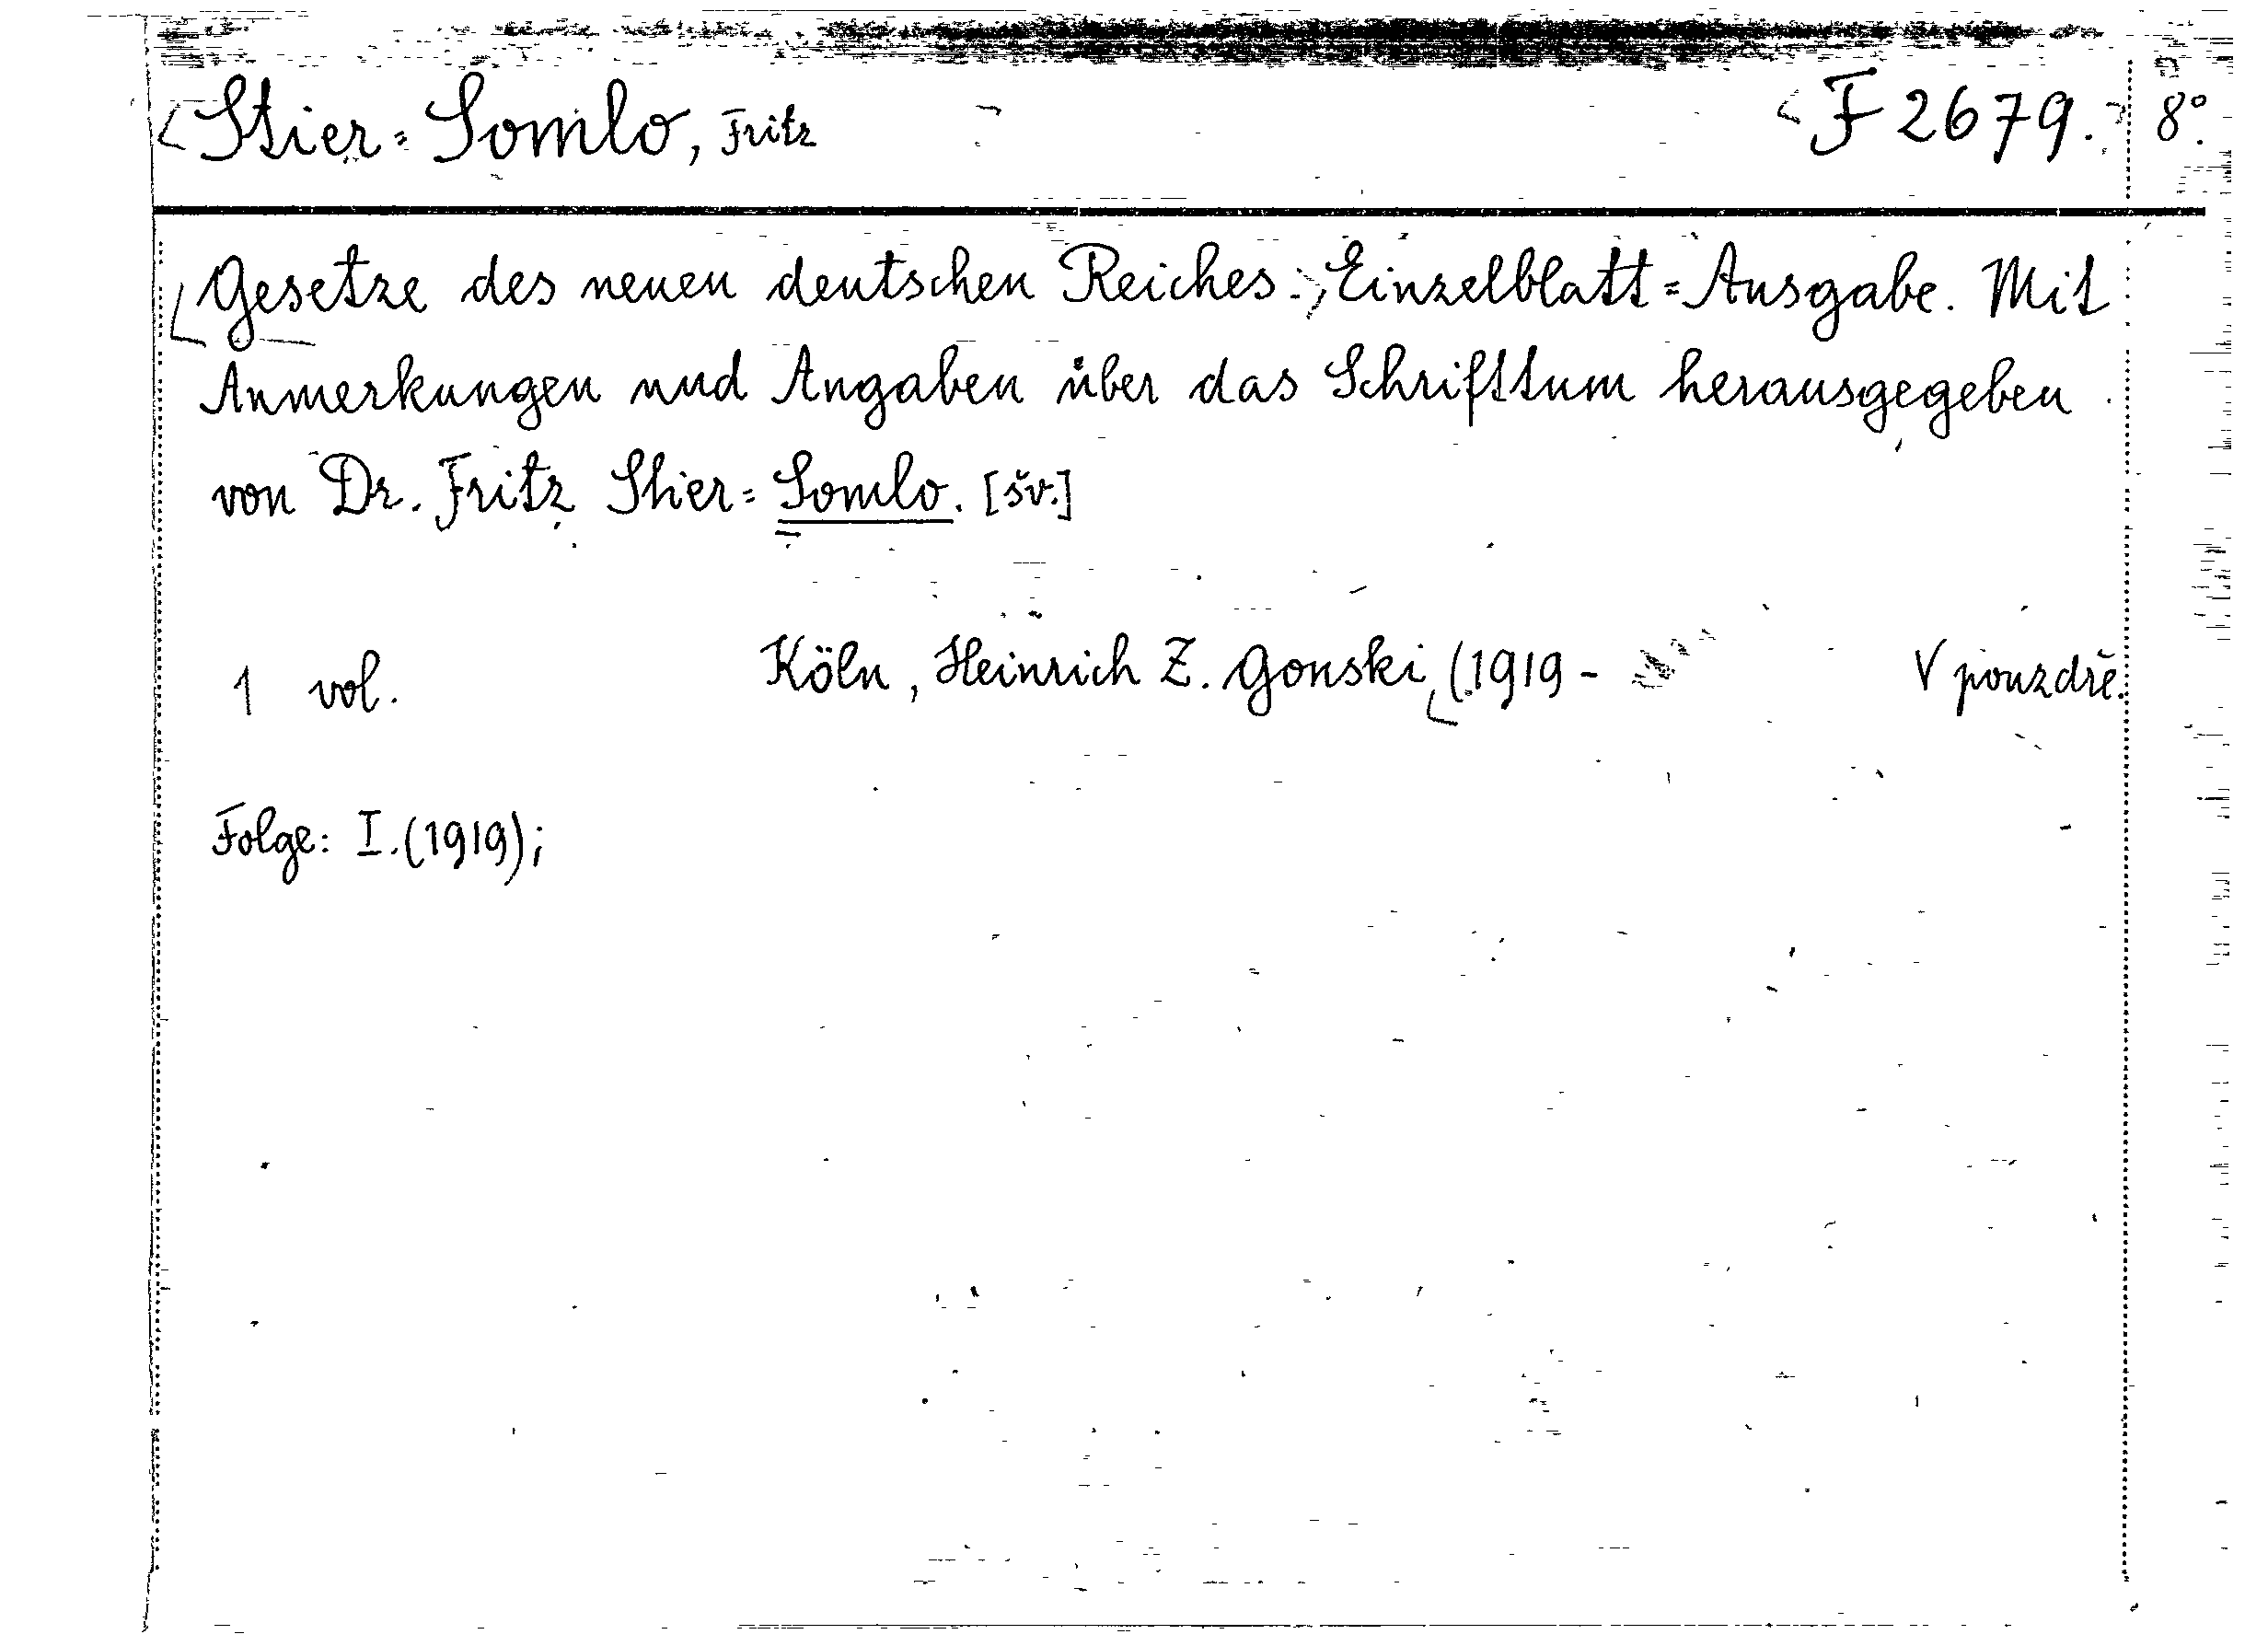 Stier=Somlo, Fritz F 2679. 8°.
Gesetze des neuen deutschen Reiches. Einzelblatt=Ausgabe. Mit
Anmerkungen und Angaben über das Schrifttum herausgegeben
von Dr. Fritz Stier=Somlo. [šv.]
1 vol. Köln, Heinrich Z. Gonski (1919 - V pouzdře.
Folge: I. (1919);